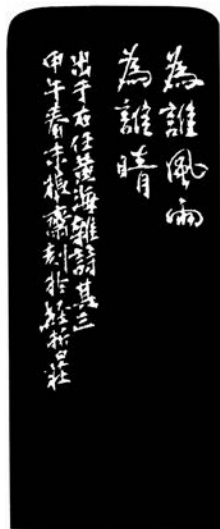 為誰風雨
為誰晴
出于右任黃海雜詩其三
甲午春末根齋刻於經折山莊